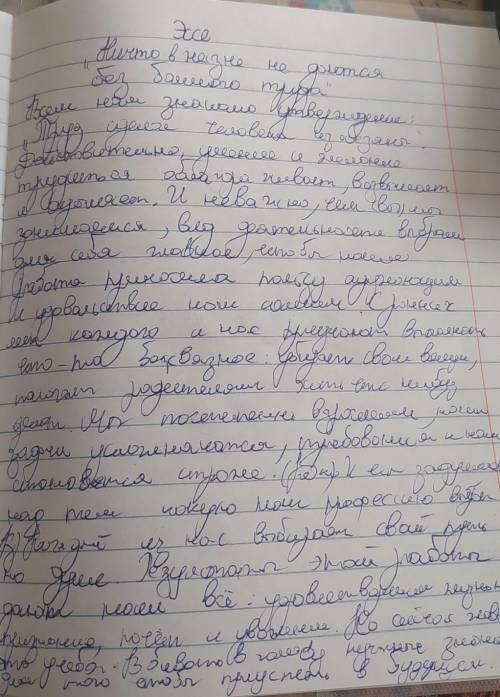 Эссе
"Ничто в жизне не дается
без большого труда"
Всем нам знакомо утверждение:
"Труд сделал человека из обезьяны".
Действительно, умение и желание
трудиться облагораживает, возвышает
и возвышает. И неважно, чем мы
занимаемся, вид деятельности выбираем
для себя главное, чтобы наша
работа приносила пользу окружающим
и удовольствие нам самим. С ранних
лет каждого из нас приучают выполнять
что-то важное: убирает свои вещи,
помогает родителям хоть чем нибуд
делят. Мы постепенно взрослеем, наши
задачи усложняются, требования к нам
становятся строже. задумываемся
над тем какую нам профессию выбрать
Каждый из нас выбирает свой путь
по душе. Результаты этой работы
дают нам всё: удовлетворение жизнью
признание, почёт и уважение. Но сейчас
это учеба. в голову научные знания
для того чтобы преуспеть в будущем.